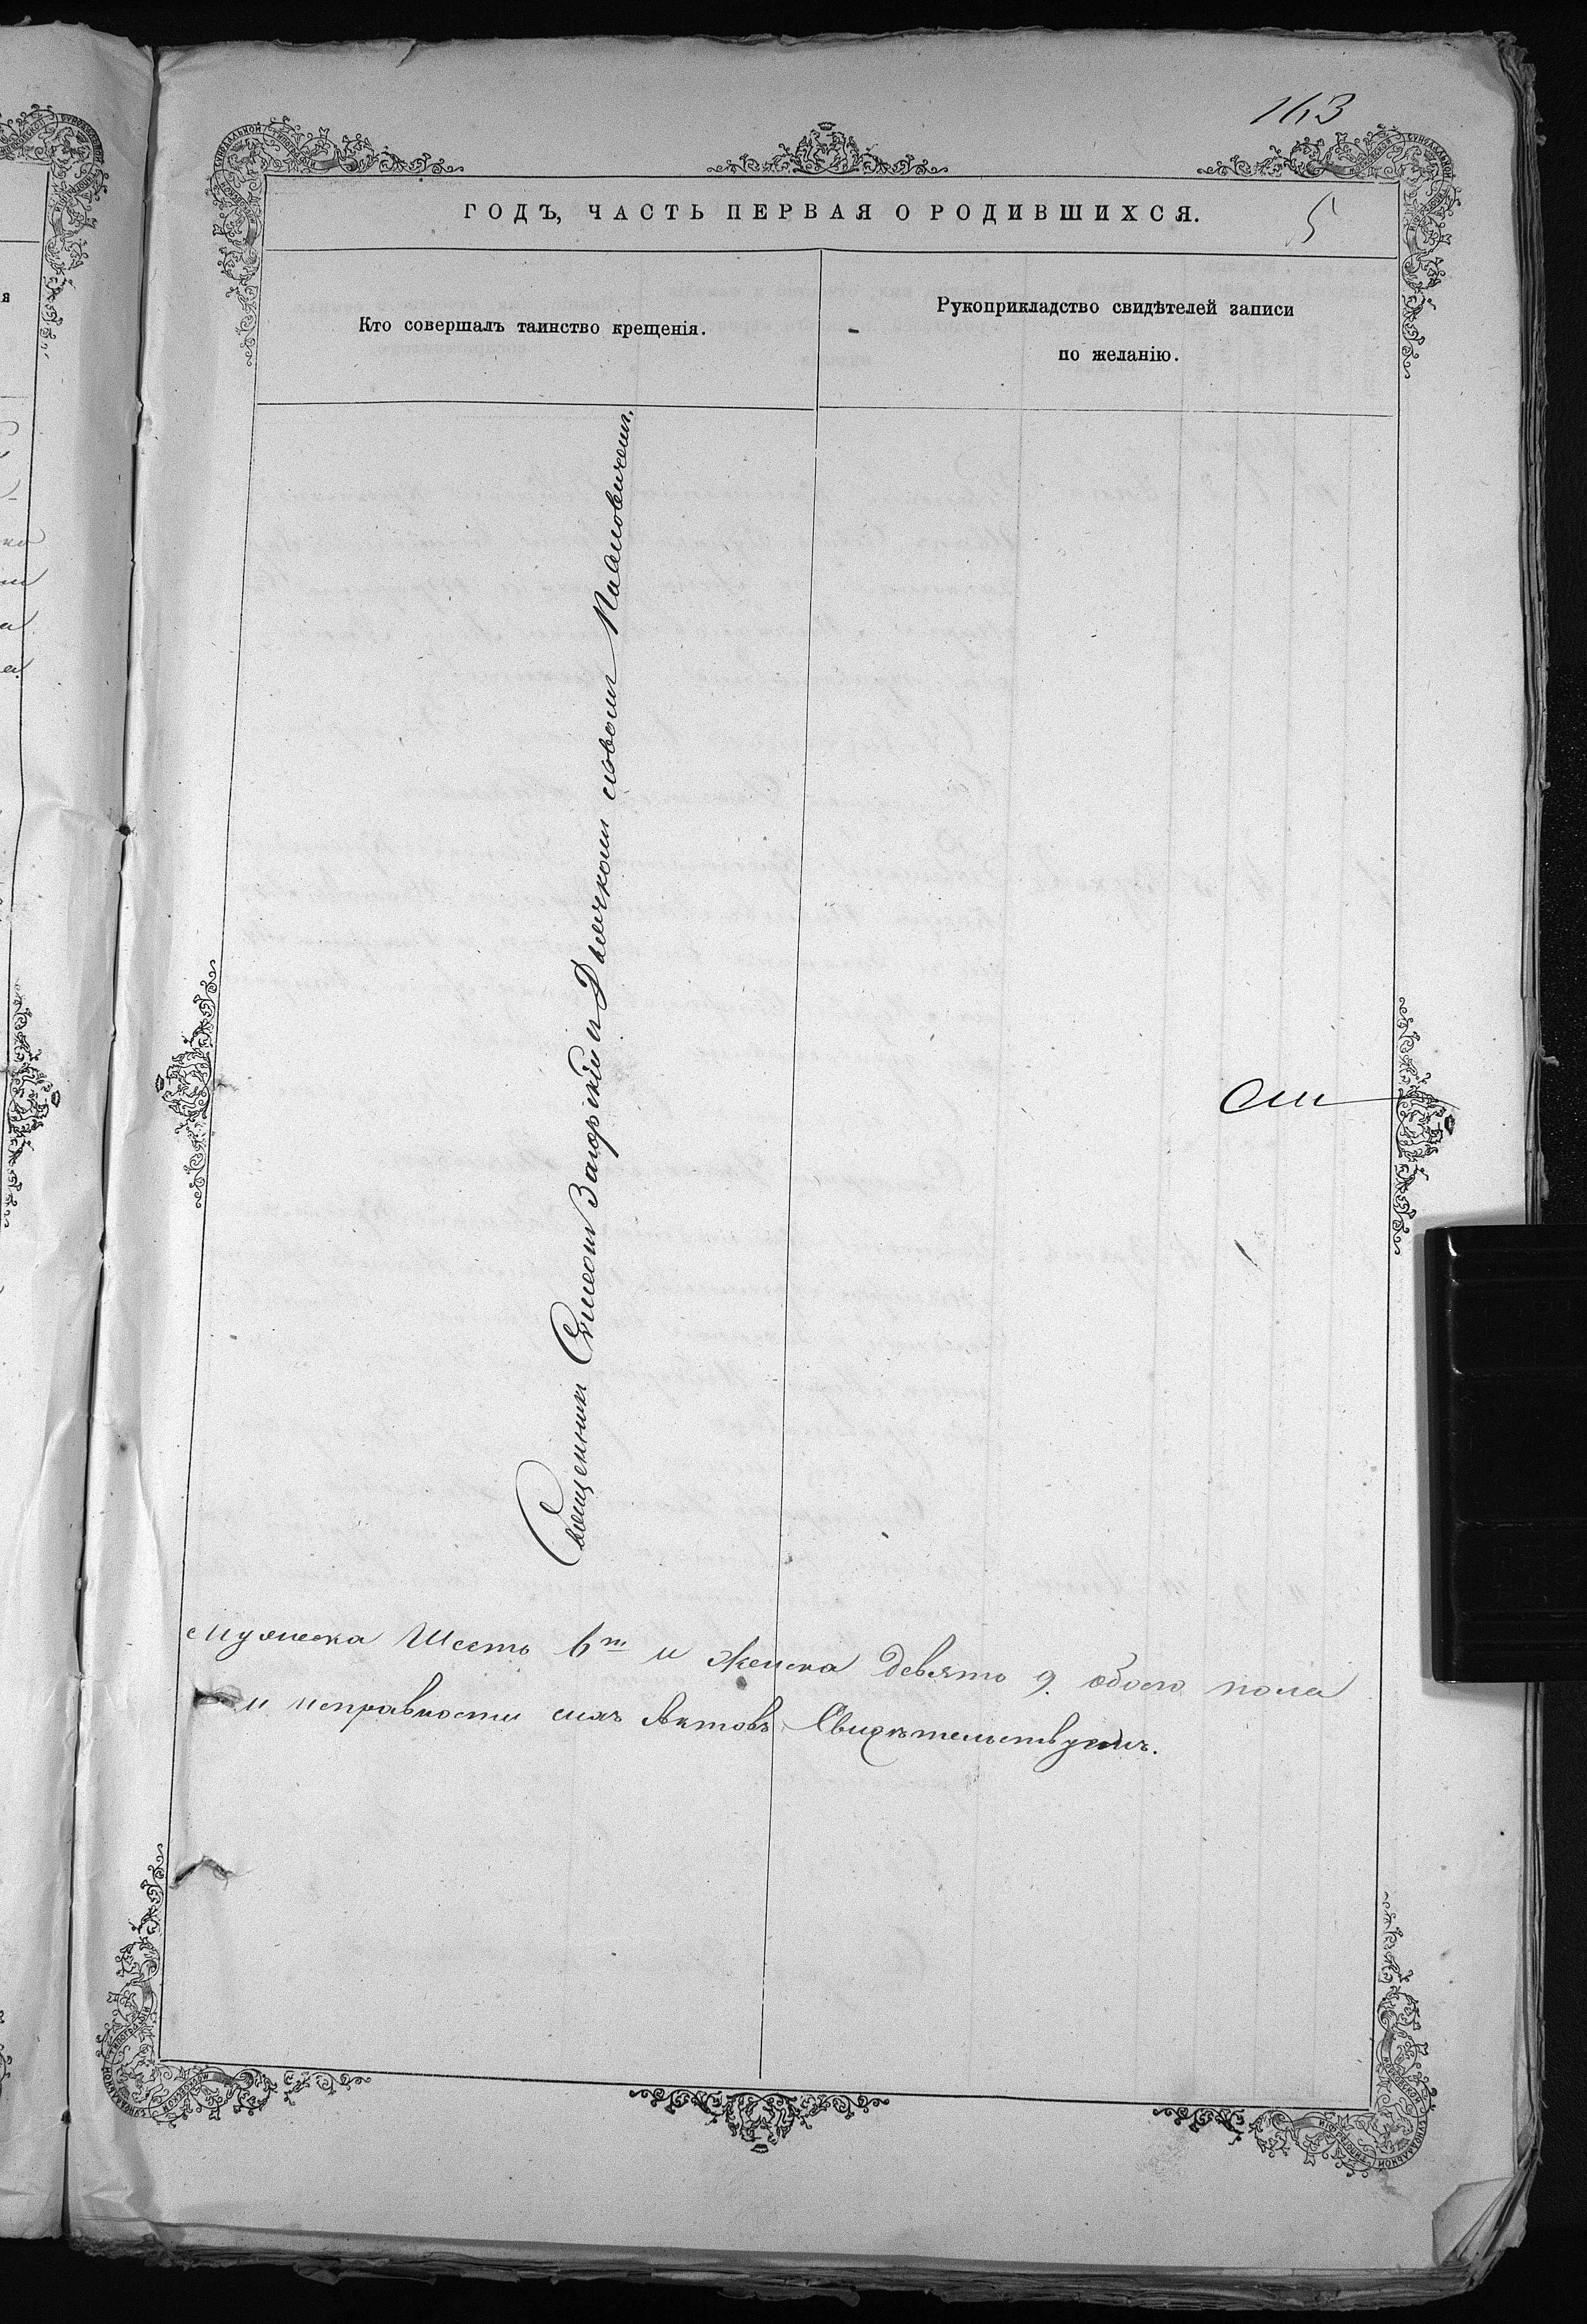 163
ГОДЪ, ЧАСТЬ ПЕРВАЯ О РОДИВШИХСЯ.
5
Кто совершалъ таинство крещенія.
Рукоприкладство свидѣтелей записи
по желанію.
Священник Симеон Загорскій с Дьячком
мужеска Шесть 6ть и женска девять 9. обоего пола
и исправности сихъ Актовъ Свидѣтельствуемъ.